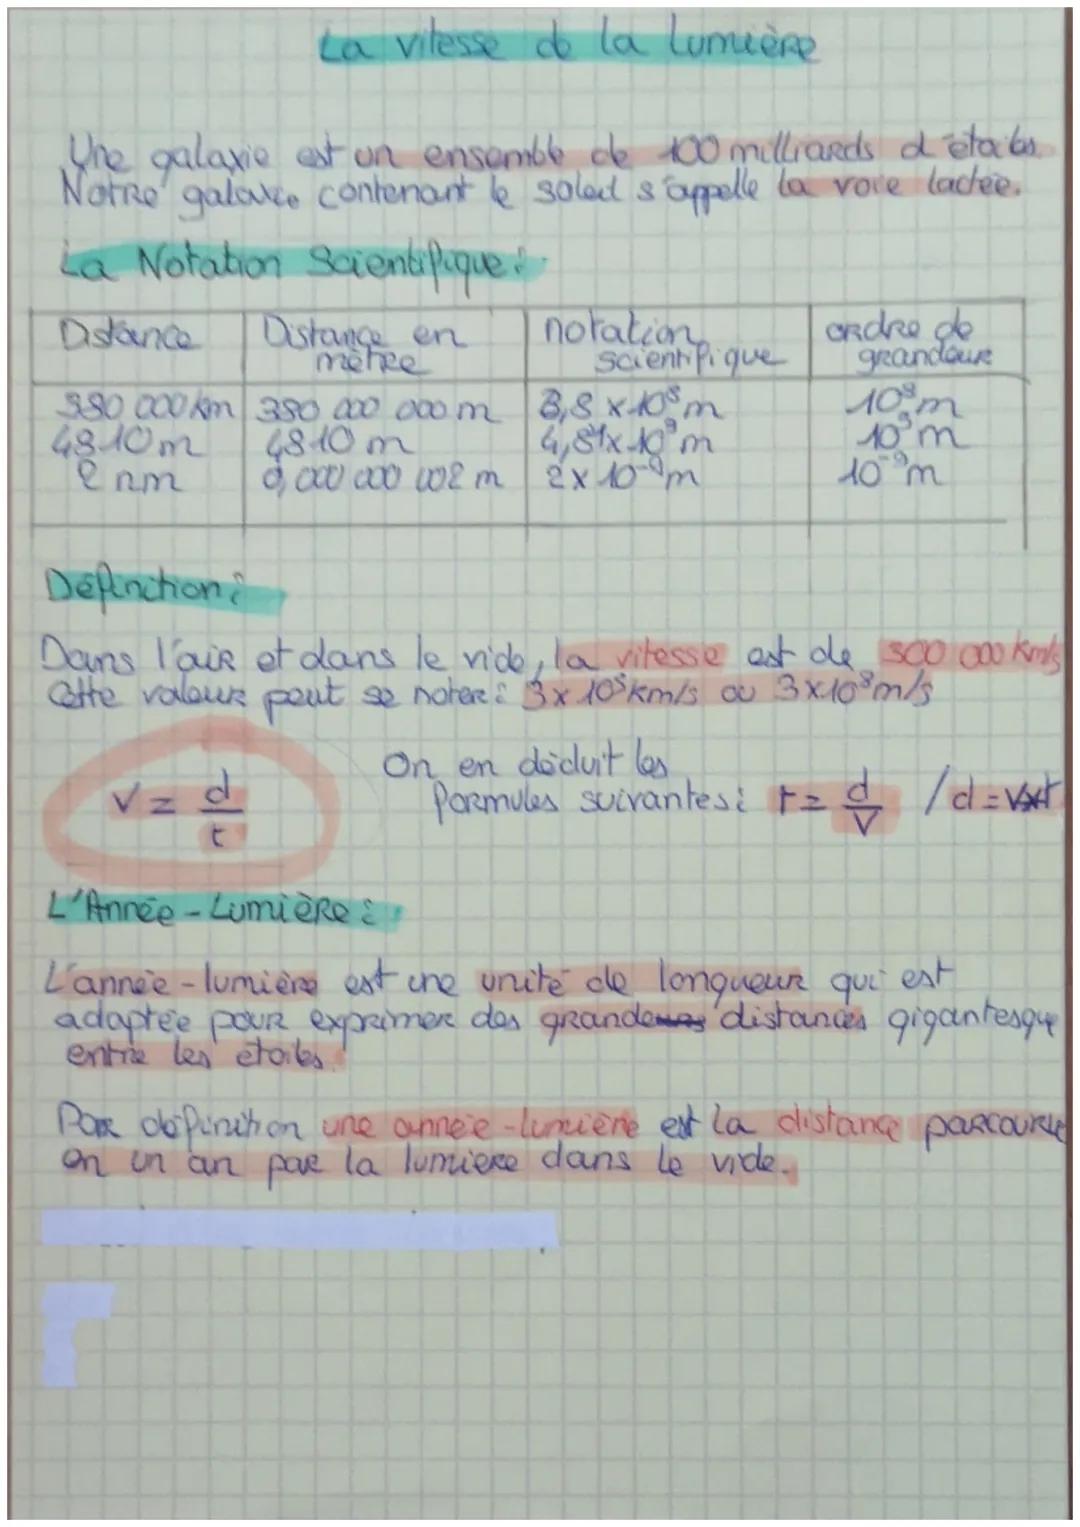 La vitesse de la lumière
Une galaxie est un ensemble de 100 milliards d'étoiles.
Notre galaxie contenant le soleil s'appelle la voie lactée.
La Notation Scientifique :
Distance | Distance en mètre | notation scientifique | ordre de grandeur
380 000 km | 380 000 000 m | 3,8 x 10⁸ m | 10⁸ m
4810 m | 4810 m | 4,81 x 10³ m | 10³ m
2 nm | 0,000 000 002 m | 2 x 10⁻⁹ m | 10⁻⁹ m
Définition :
Dans l'air et dans le vide, la vitesse est de 300 000 km/s
Cette valeur peut se noter : 3 x 10⁵ km/s ou 3 x 10⁸ m/s
V = d/t
On en déduit les
formules suivantes : t = d/V / d = Vxt
L'Année - Lumière :
L'année - lumière est une unité de longueur qui est
adaptée pour exprimer des grande distances gigantesque
entre les étoiles.
Par définition une année - lumière est la distance parcourue
en un an par la lumière dans le vide.